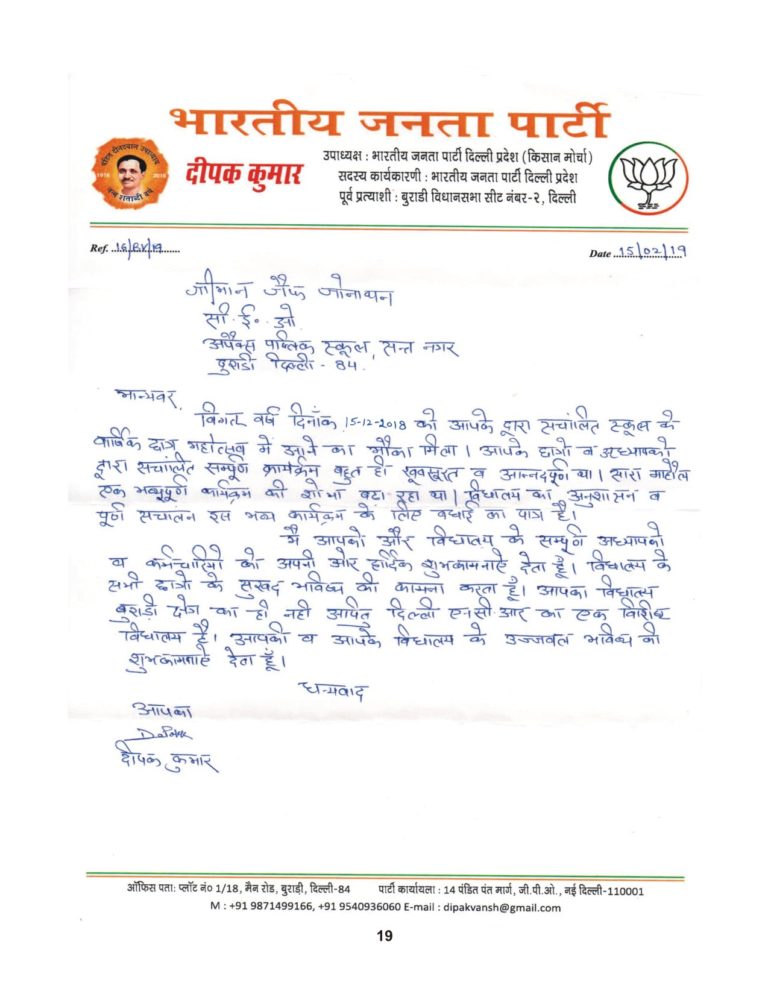 भारतीय जनता पार्टी
दीपक कुमार
उपाध्यक्ष : भारतीय जनता पार्टी दिल्ली प्रदेश (किसान मोर्चा)
सदस्य कार्यकारणी : भारतीय जनता पार्टी दिल्ली प्रदेश
पूर्व प्रत्याशी : बुराडी विधानसभा सीट नंबर-२, दिल्ली
पंडित दीनदयाल उपाध्याय
1916 2016
जन्म शताब्दी वर्ष
Ref. 16/BV/19
Date 15/02/19
श्रीमान जैफ जोनाथन
सी. ई. ओ.
अपैक्स पब्लिक स्कूल, सन्त नगर
बुराडी दिल्ली - 84.
मान्यवर,
विगत वर्ष दिनाँक 15-12-2018 को आपके द्वारा सचांलित स्कूल के
वार्षिक छात्र महोत्सव में आने का मौका मिला । आपके छात्रो व अध्यापको
द्वारा सचांलित सम्पूर्ण कार्यक्रम बहुत ही खूबसूरत व आन्नदपूर्ण था । सारा माहौल
एक भव्यपूर्ण कार्यक्रम की शोभा बढा रहा था । विधालय का अनुशासन व
पूर्ण सचालन इस भव्य कार्यक्रम के लिए बधाई का पात्र है ।
मैं आपको और विधालय के सम्पूर्ण अध्यापको
व कर्मचारियो को अपनी ओर हार्दिक शुभकामनाऐ देता हूँ । विधालय के
सभी छात्रो के सुखद भविष्य की कामना करता हूँ । आपका विधालय
बुराडी क्षेत्र का ही नही अपितु दिल्ली एनसीआर का एक विशिष्ट
विधालय है । आपको व आपके विधालय के उज्जवल भविष्य की
शुभकामनाऐ देता हूँ ।
धन्यवाद
आपका
Deepak
दीपक कुमार
ऑफिस पता: प्लॉट नं० 1/18, मैन रोड, बुराड़ी, दिल्ली-84 पार्टी कार्यायला : 14 पंडित पंत मार्ग, जी.पी.ओ., नई दिल्ली-110001
M : +91 9871499166, +91 9540936060 E-mail : dipakvansh@gmail.com
19